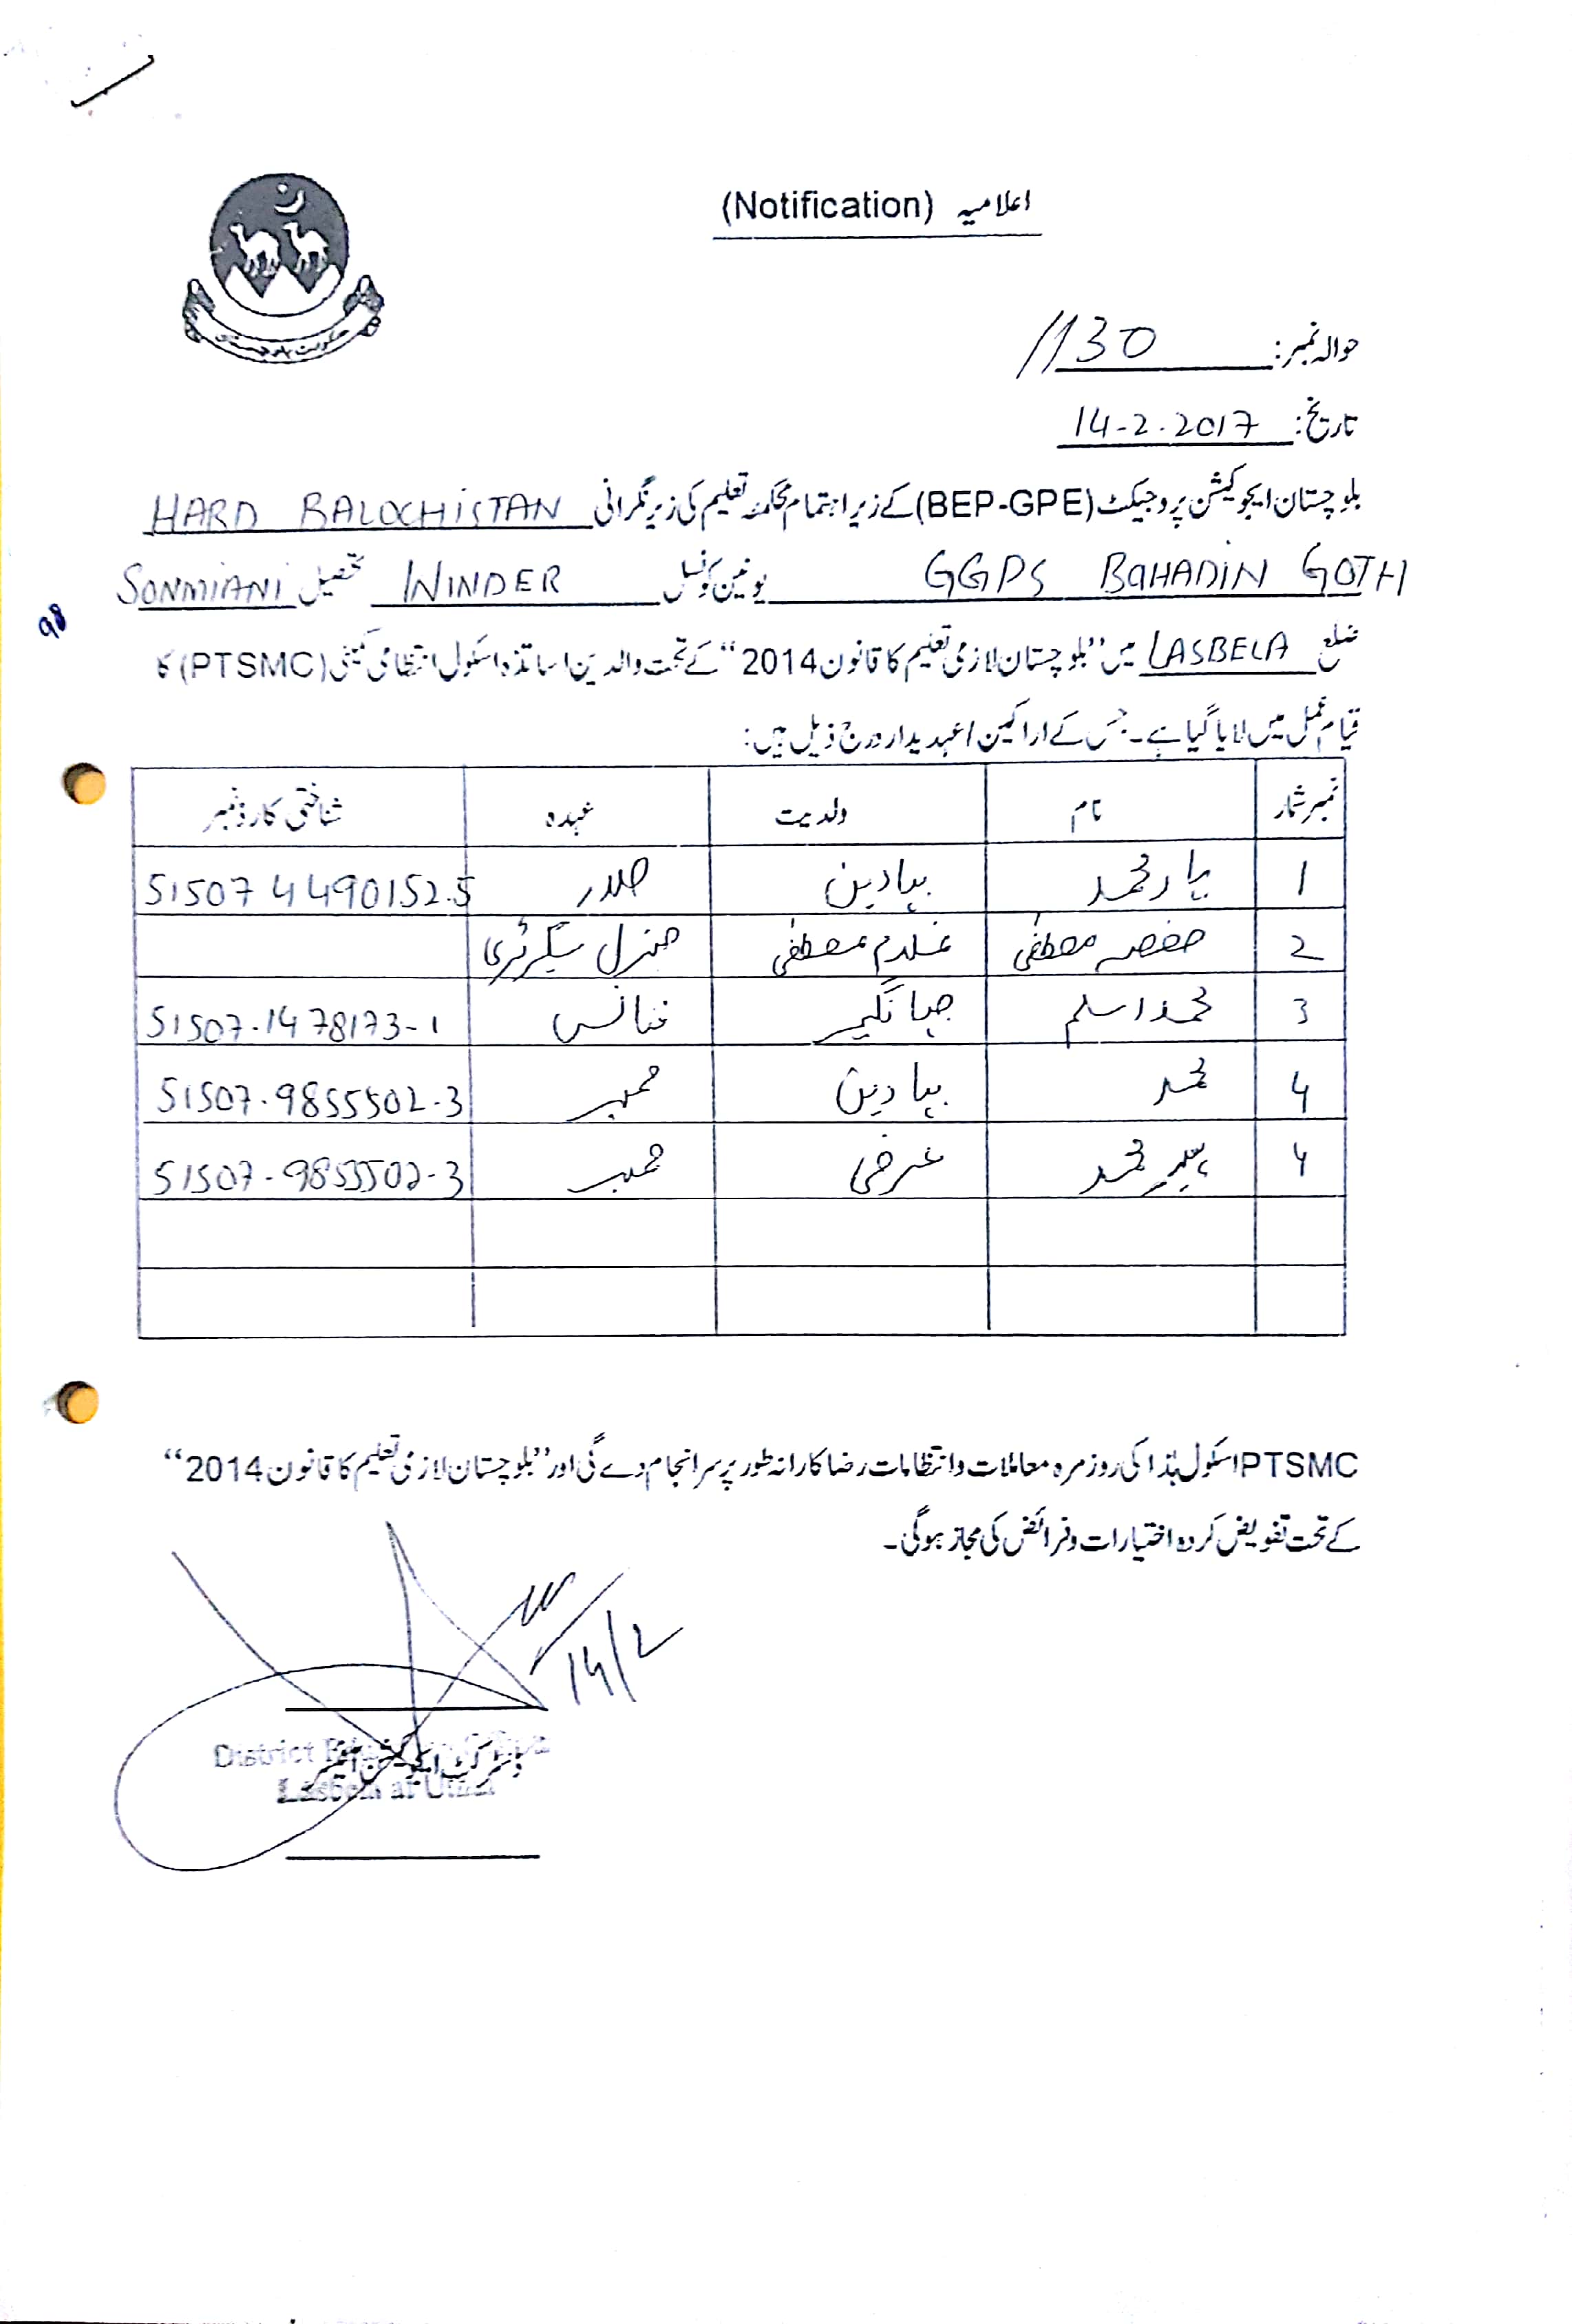 اعلامیہ (Notification)
حکومت بلوچستان
حوالہ نمبر: 1130
تاریخ: 14-2-2017
بلوچستان ایجوکیشن پروجیکٹ (BEP-GPE) کے زیر اہتمام محکمہ تعلیم کی زیر نگرانی HARD BALOCHISTAN
GGPS BAHADIN GOTH یونین کونسل WINDER تحصیل SONMIANI
98
ضلع LASBELA میں ”بلوچستان لازمی تعلیم کا قانون 2014“ کے تحت والدین اساتذہ اسکول انتظامی کمیٹی (PTSMC) کا
قیام عمل میں لایا گیا ہے۔ جس کے اراکین / عہدیدار درج ذیل ہیں:
نمبر شمار نام ولدیت عہدہ شناختی کارڈ نمبر
1 یار محمد بہادین صدر 51507 4490152-5
2 حفصہ مصطفی غلام مصطفی جنرل سیکرٹری
3 محمد اسلم جہانگیر فنانس 51507-1478173-1
4 محمد بہادین ممبر 51507-9855502-3
4 پیر محمد عرضی ممبر 51507-9855502-3
PTSMC اسکول ہٰذا کی روزمرہ معاملات و انتظامات رضا کارانہ طور پر سرانجام دے گی اور ”بلوچستان لازمی تعلیم کا قانون 2014“
کے تحت تفویض کردہ اختیارات و فرائض کی مجاز ہوگی۔
14/2
District
Lasbela at Uthal